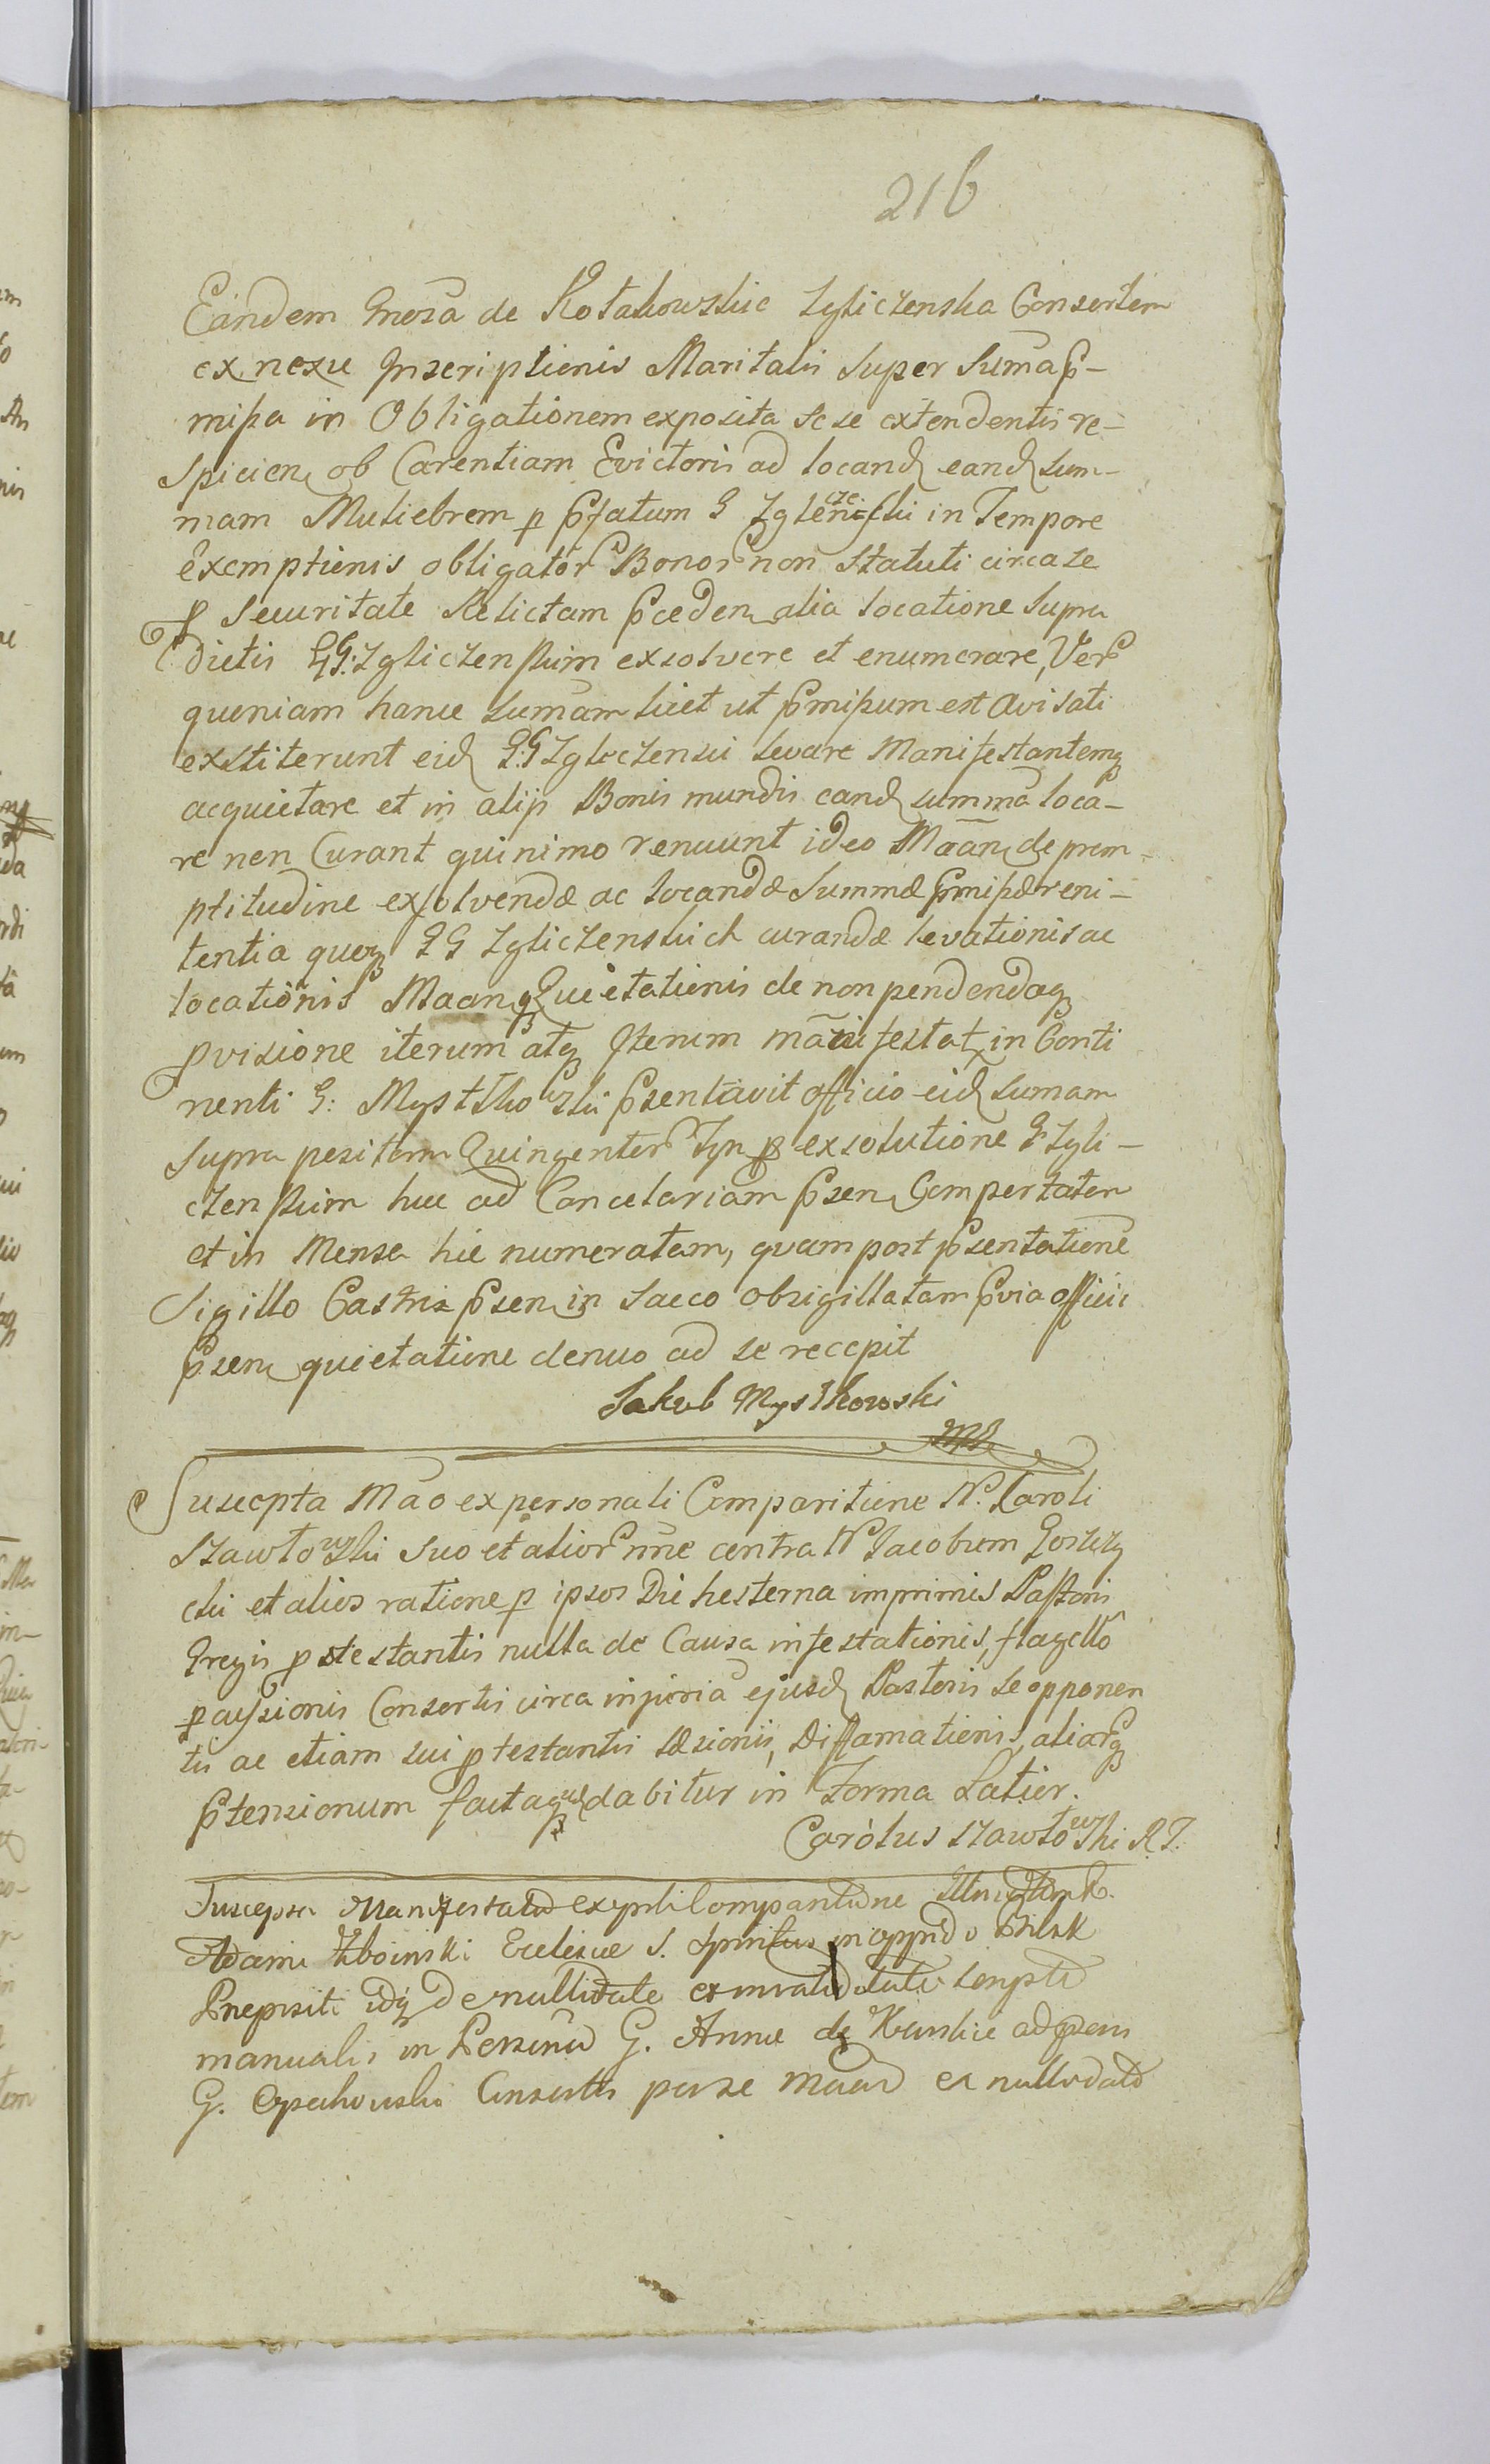 216
Eandem Gnosa de Kołakowskie Zgliczenska Consortem
ex nexu Inscriptionis Maritalis Super Suma p̄-
missa in Obligationem exposita se se extendentis re-
spicien ob Carentiam Evictoris ad locand eand sum-
mam Muliebrem p p̄fatum G Zgleniczeski in Tempore
exemptionis obligator Bonor non Statuti circa se
p Securitate Relictam p̄ceden alia locatione Supra
dictis GG: Zgliczenskim exsolvere et enumerare, Ver
quoniam hanc sumam licet ut p̄missum est Avisati
exstiterunt eid G:G Zgliczensci levare Manifestantemq
acquietare et in alijs Bonis mundis eand summā loca-
re non Curant quinimo renuunt ideo Māan de prom-
ptitudine exsolvendæ ac locandæ Summæ p̄missæ reni-
tentia quoq GG Zgliczenskich curandæ levationis ac
locationis Maanq Quietationis de non pendendaq
pvisione iterum atq Iterum manifestat, in Conti
nenti G: Mystkowski p̄sentavit officio eid sumam
Supra positam Quingentor Tyn p exsolutione G Zgli-
czenskim huc ad Cancelariam p̄sen Comportatam
et in Mensa hic numeratam, quam post p̄sentationē
Sigillo Castris p̄sen in Sacco obsigillatam p̄via officii
p̄sen quietatione denuo ad se recepit
Jakub Mystkowski
mp
Suscepta Māo ex personali Comparitione N. Caroli
Szawłowski suo et alior nne contra N Jacobum
cki et alios ratione p ipsos Die hesterna imprimis Pastoris
Gregis ptestantis nulla de Causa infestationis, flagellō
pcussionis Consortis circa injuriā ejusd Pastoris se opponen
tis ac etiam sui ptestantis læsionis, Diffamationis, aliarq
p̄tensionum factaq dabitur in Forma Latior.
Carolus Szawłowski R.T.
Suscepta Manifestatio ex pnli Comparitione
Adami Zboinski Ecclesiae S. Spiritus in oppido Bielsk
Prepositi idq de nullitate et invaliditate scripti
manualis in Personam G. Annae de ad psens
G. Consortis per se et nullitate